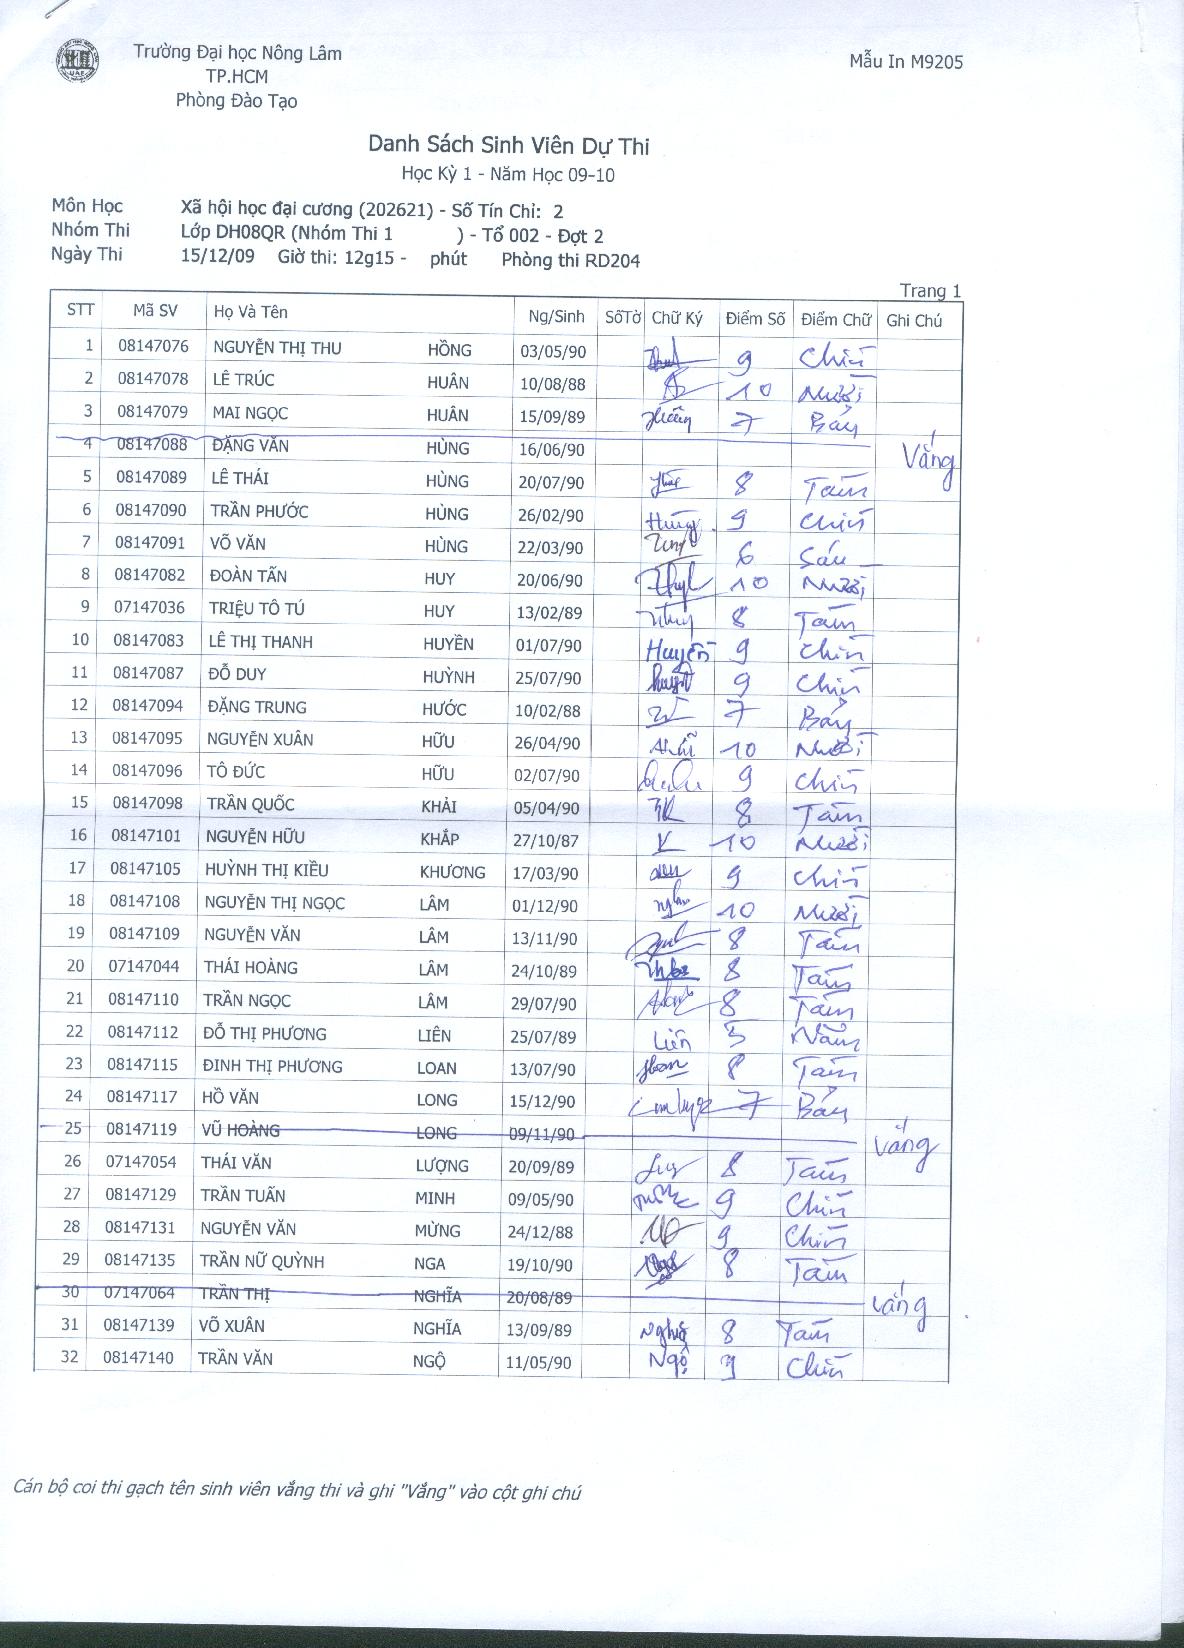 Trường Đại học Nông Lâm
TP.HCM
Phòng Đào Tạo
Mẫu In M9205
Danh Sách Sinh Viên Dự Thi
Học Kỳ 1 - Năm Học 09-10
Môn Học Xã hội học đại cương (202621) - Số Tín Chỉ: 2
Nhóm Thi Lớp DH08QR (Nhóm Thi 1 ) - Tổ 002 - Đợt 2
Ngày Thi 15/12/09 Giờ thi: 12g15 - phút Phòng thi RD204
Trang 1
STT Mã SV Họ Và Tên Ng/Sinh SốTờ Chữ Ký Điểm Số Điểm Chữ Ghi Chú
1 08147076 NGUYỄN THỊ THU HỒNG 03/05/90 9 Chín
2 08147078 LÊ TRÚC HUÂN 10/08/88 10 Mười
3 08147079 MAI NGỌC HUÂN 15/09/89 Huân 7 Bảy
4 08147088 ĐẶNG VĂN HÙNG 16/06/90 Vắng
5 08147089 LÊ THÁI HÙNG 20/07/90 8 Tám
6 08147090 TRẦN PHƯỚC HÙNG 26/02/90 Hùng 9 Chín
7 08147091 VÕ VĂN HÙNG 22/03/90 6 Sáu
8 08147082 ĐOÀN TẤN HUY 20/06/90 10 Mười
9 07147036 TRIỆU TÔ TÚ HUY 13/02/89 8 Tám
10 08147083 LÊ THỊ THANH HUYỀN 01/07/90 Huyền 9 Chín
11 08147087 ĐỖ DUY HUỲNH 25/07/90 9 Chín
12 08147094 ĐẶNG TRUNG HƯỚC 10/02/88 7 Bảy
13 08147095 NGUYỄN XUÂN HỮU 26/04/90 10 Mười
14 08147096 TÔ ĐỨC HỮU 02/07/90 9 Chín
15 08147098 TRẦN QUỐC KHẢI 05/04/90 8 Tám
16 08147101 NGUYỄN HỮU KHẮP 27/10/87 10 Mười
17 08147105 HUỲNH THỊ KIỀU KHƯƠNG 17/03/90 9 Chín
18 08147108 NGUYỄN THỊ NGỌC LÂM 01/12/90 10 Mười
19 08147109 NGUYỄN VĂN LÂM 13/11/90 8 Tám
20 07147044 THÁI HOÀNG LÂM 24/10/89 8 Tám
21 08147110 TRẦN NGỌC LÂM 29/07/90 8 Tám
22 08147112 ĐỖ THỊ PHƯƠNG LIÊN 25/07/89 Liên 5 Năm
23 08147115 ĐINH THỊ PHƯƠNG LOAN 13/07/90 8 Tám
24 08147117 HỒ VĂN LONG 15/12/90 7 Bảy
25 08147119 VŨ HOÀNG LONG 09/11/90 Vắng
26 07147054 THÁI VĂN LƯỢNG 20/09/89 8 Tám
27 08147129 TRẦN TUẤN MINH 09/05/90 9 Chín
28 08147131 NGUYỄN VĂN MỪNG 24/12/88 9 Chín
29 08147135 TRẦN NỮ QUỲNH NGA 19/10/90 8 Tám
30 07147064 TRẦN THỊ NGHĨA 20/08/89 Vắng
31 08147139 VÕ XUÂN NGHĨA 13/09/89 Nghĩa 8 Tám
32 08147140 TRẦN VĂN NGỘ 11/05/90 Ngộ 9 Chín
Cán bộ coi thi gạch tên sinh viên vắng thi và ghi "Vắng" vào cột ghi chú